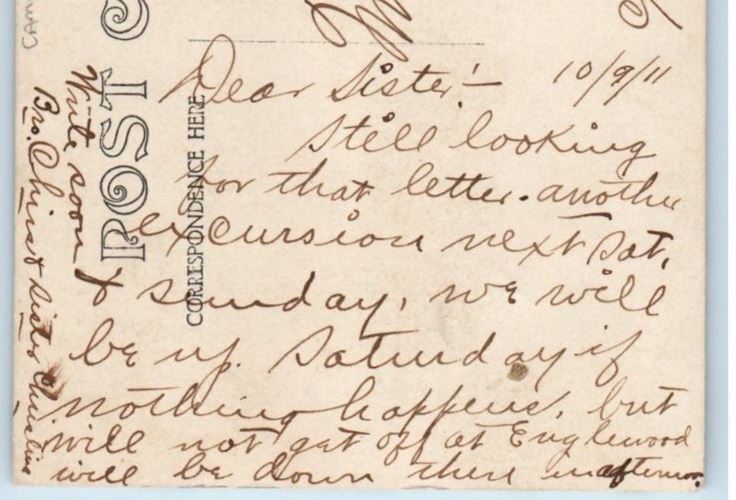 Dear Sister:— 10/9/11
Still looking
for that letter. another
excursion next Sat,
& sunday, we will
be up. Saturday if
nothing happens, but
will not get off at Englewood
will be down there in afternoon.
Write soon
Bro. Chris & sister Christine
POST
CORRESPONDENCE HERE